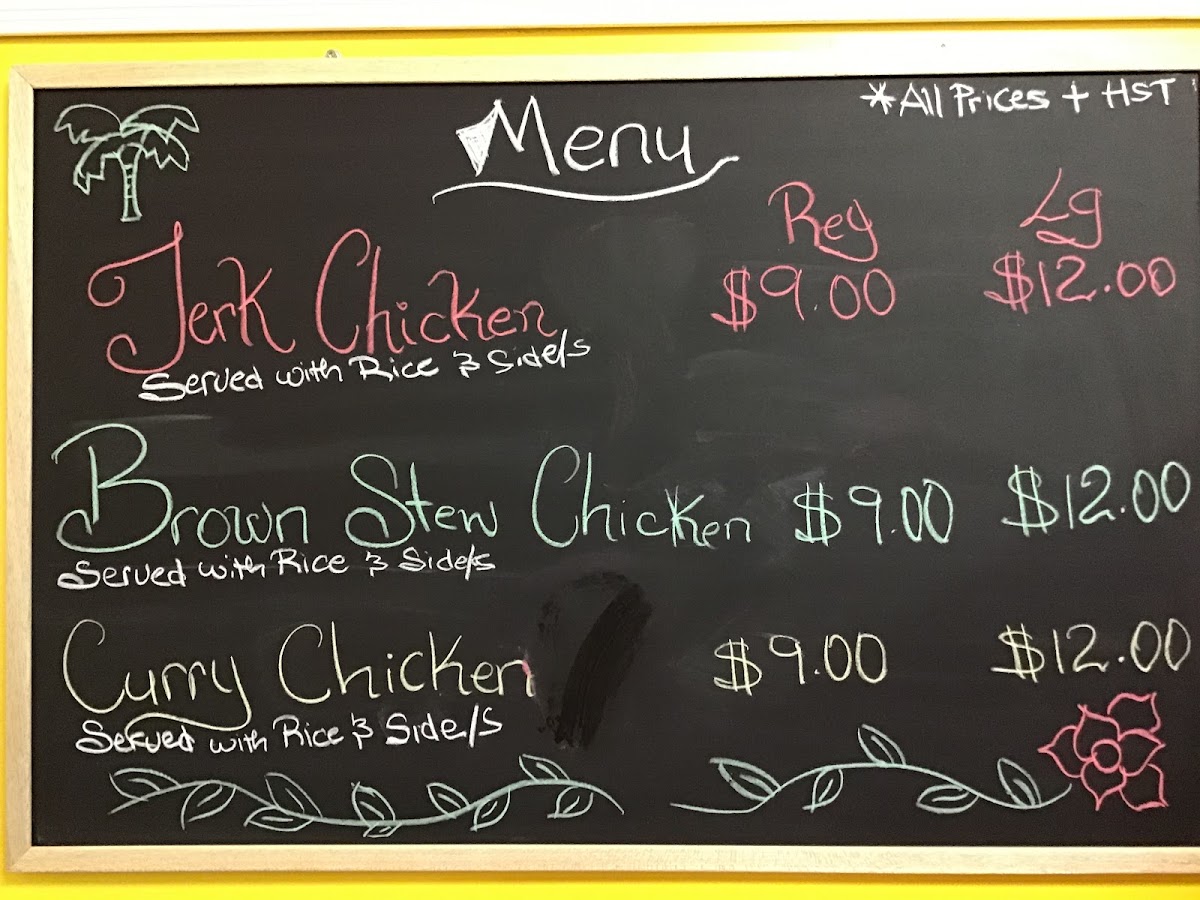 *All Prices + HST
Menu
Reg Lg
Jerk Chicken $9.00 $12.00
Served with Rice & Side/s
Brown Stew Chicken $9.00 $12.00
Served with Rice & Side/s
Curry Chicken $9.00 $12.00
Served with Rice & Side/s